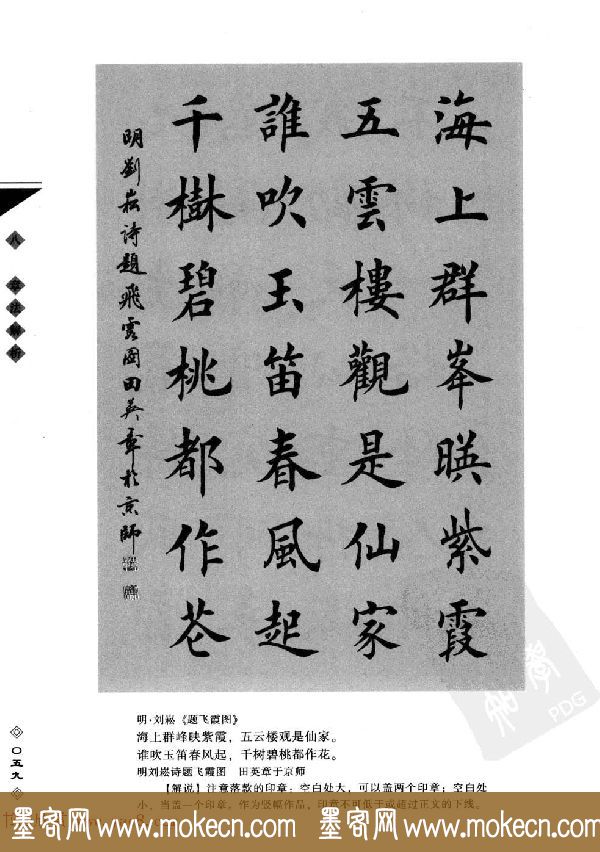 海上群峯暎紫霞
五雲樓觀是仙家
誰吹玉笛春風起
千樹碧桃都作花
明劉崧詩題飛霞圖田英章於京師
八 章法解析
明·刘崧《题飞霞图》
海上群峰映紫霞，五云楼观是仙家。
谁吹玉笛春风起，千树碧桃都作花。
明刘崧诗题飞霞图 田英章于京师
【解说】注意落款的印章：空白处大，可以盖两个印章；空白处
小，当盖一个印章，作为竖幅作品，印章不可低于或超过正文的下线。
059
PDG
墨客网 www.mokecn.com 墨客网 www.mokecn.com